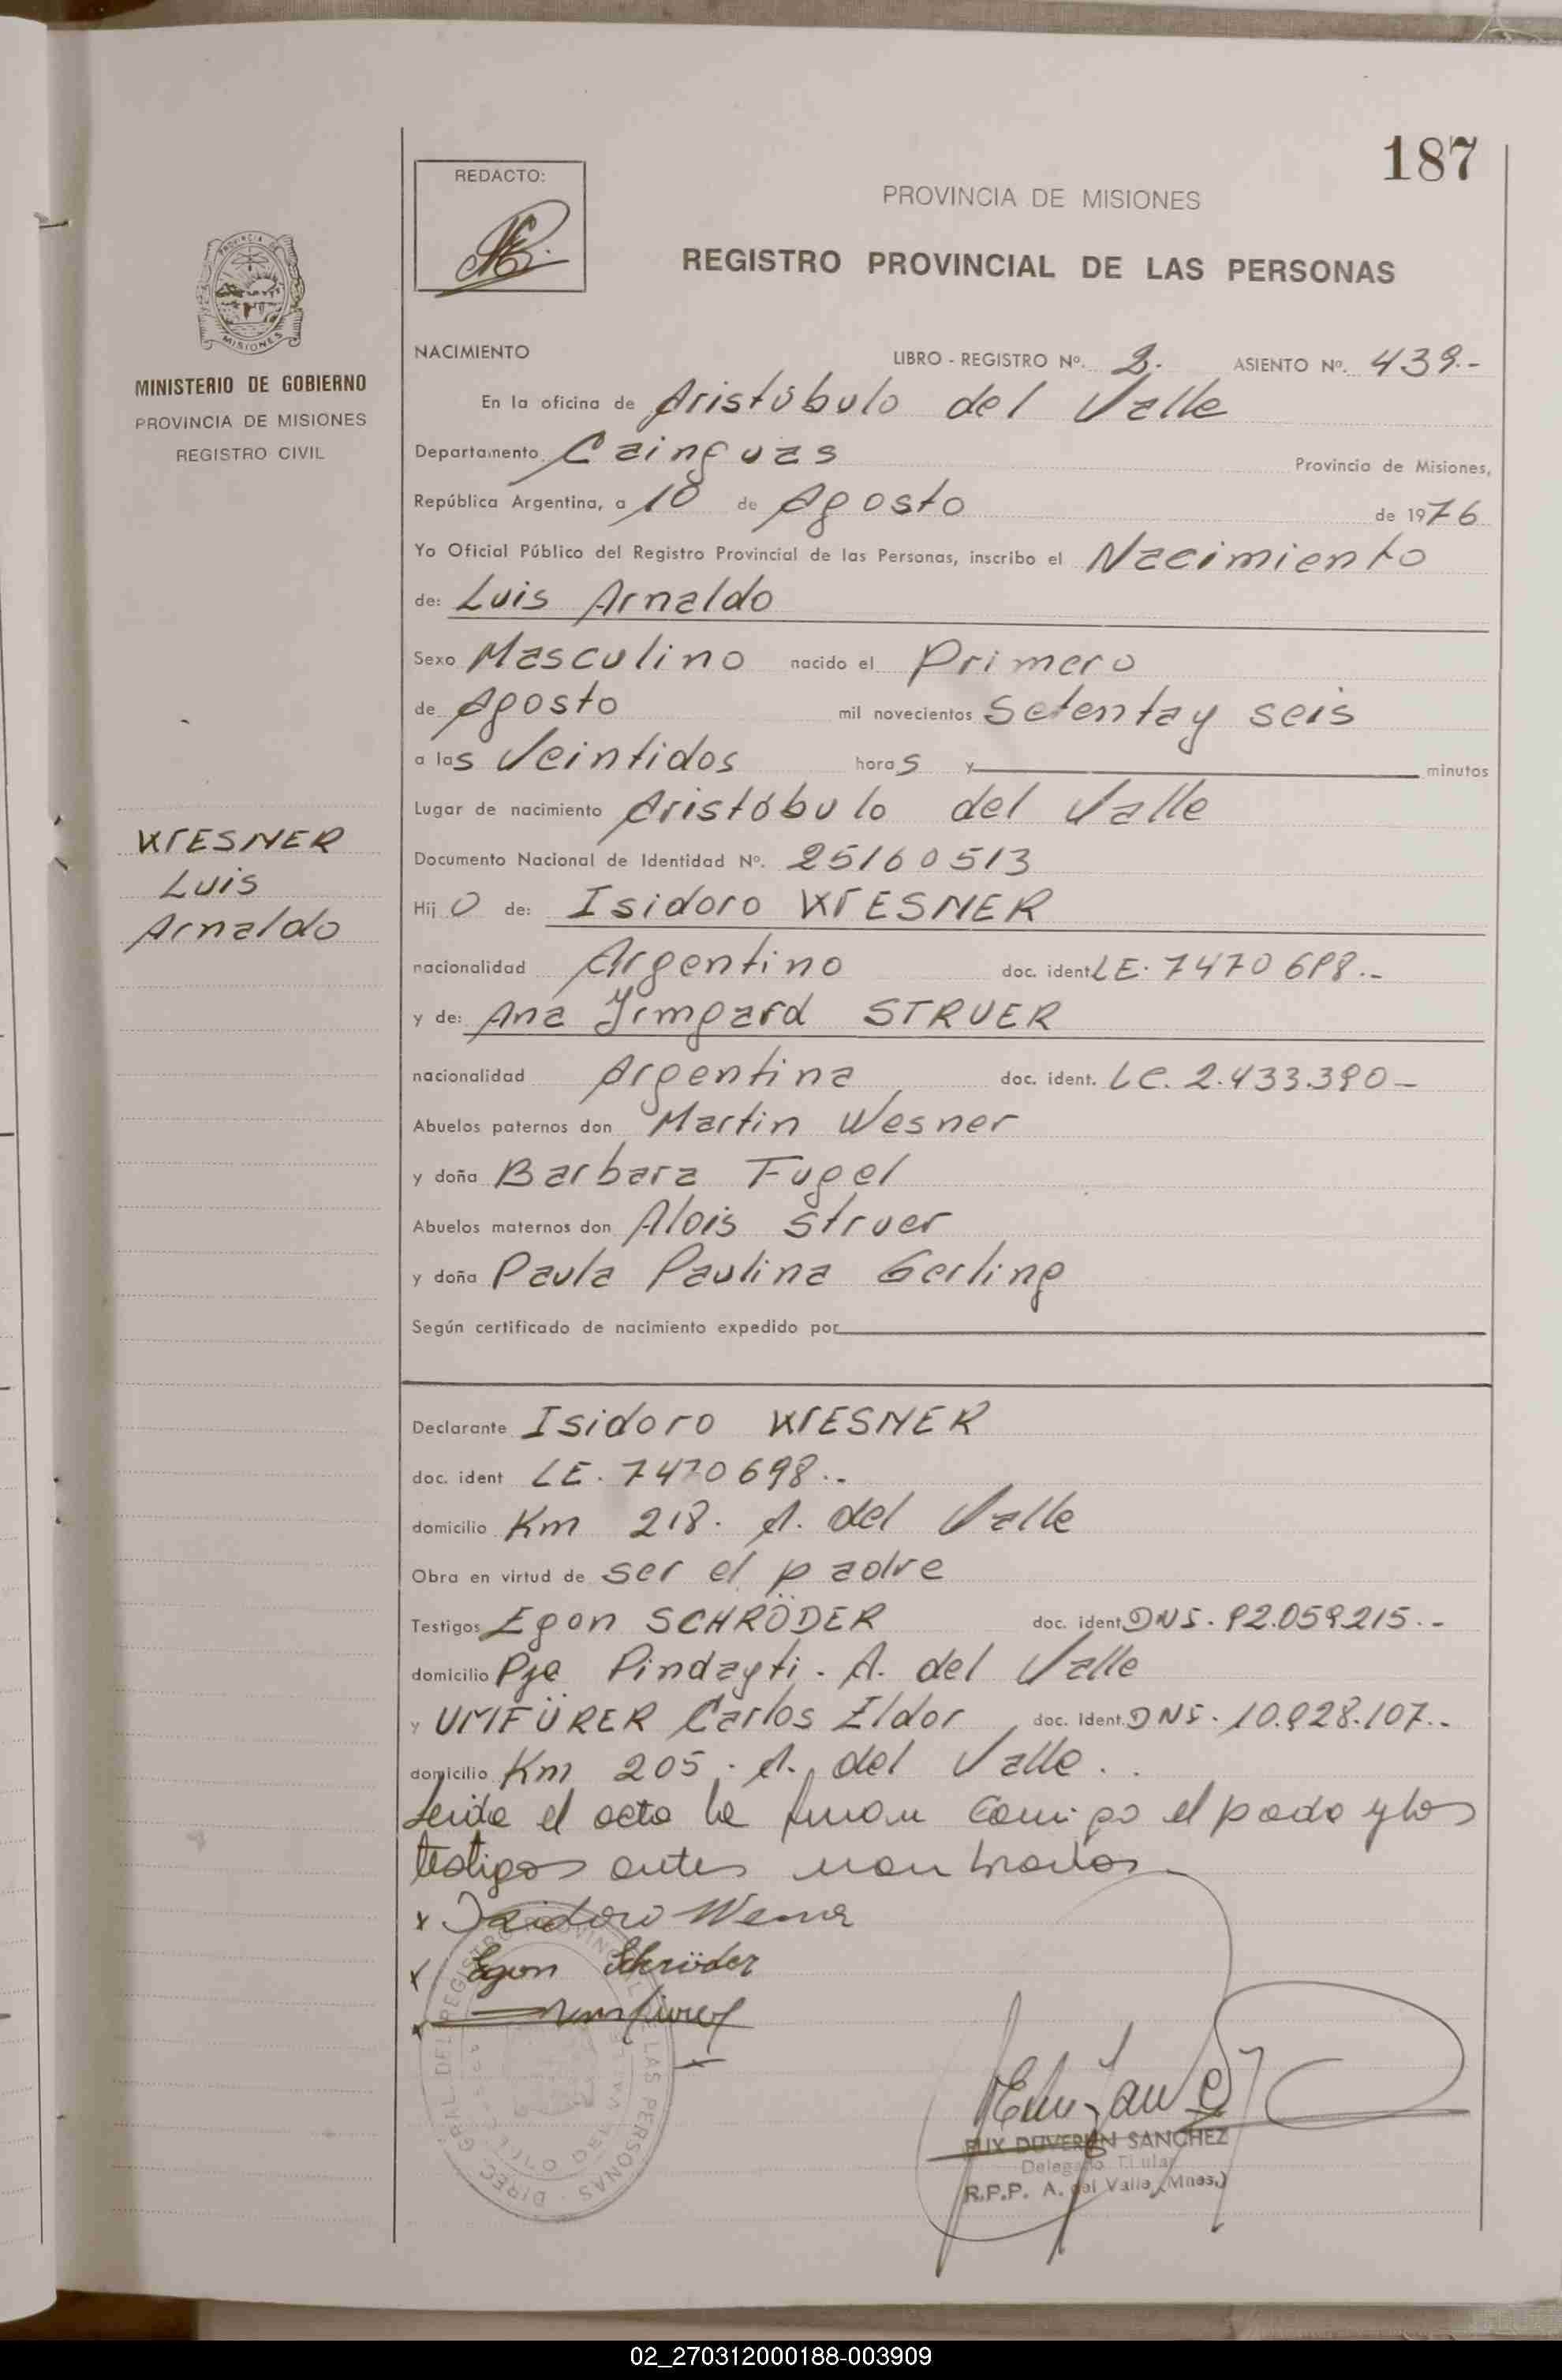 187
REDACTO:
PROVINCIA DE MISIONES
REGISTRO PROVINCIAL DE LAS PERSONAS
PROVINCIA DE
MISIONES
MINISTERIO DE GOBIERNO
PROVINCIA DE MISIONES
REGISTRO CIVIL
NACIMIENTO LIBRO - REGISTRO Nº. 2. ASIENTO Nº. 439.-
En la oficina de Aristóbulo del Valle
Departamento Cainguas Provincia de Misiones,
República Argentina, a 10 de Agosto de 1976
Yo Oficial Público del Registro Provincial de las Personas, inscribo el Nacimiento
de: Luis Arnaldo
Sexo Masculino nacido el Primero
de Agosto mil novecientos Setentay seis
a las Veintidos horas y minutos
Lugar de nacimiento Aristóbulo del Valle
WESNER
Luis
Arnaldo
Documento Nacional de Identidad Nº. 25160513
Hijo de: Isidoro WESNER
nacionalidad Argentino doc. ident LE. 7470698.-
y de: Ana Irmgard STRUER
nacionalidad Argentina doc. ident. LC. 2.433.390-
Abuelos paternos don Martin Wesner
y doña Barbara Fugel
Abuelos maternos don Alois Struer
y doña Paula Paulina Gerling
Según certificado de nacimiento expedido por
Declarante Isidoro WESNER
doc. ident LE. 7470698.-
domicilio Km 218. A. del Valle
Obra en virtud de ser el padre
Testigos Egon SCHRÖDER doc. ident DNI. 92.059215.-
domicilio Pje Pindayti. A. del Valle
y UMFÜRER Carlos Eldor doc. Ident. DNI. 10.928.107.-
domicilio Km 205. A. del Valle.
Leida el acta la firman conmigo el padre y los
testigos antes nombrados
x Isidoro Wesner
x Egon Schröder
x
DIREC. GRAL DEL REGISTRO PROVINCIAL DE LAS PERSONAS
DUVERAN SANCHEZ
Delegado Titular
R.P.P. A. del Valle (Mnes.)
02_270312000188-003909